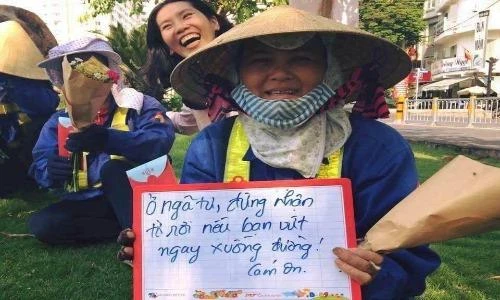 Ở ngã tư, đừng nhận
tờ rơi nếu bạn vứt
ngay xuống đường!
Cám ơn.